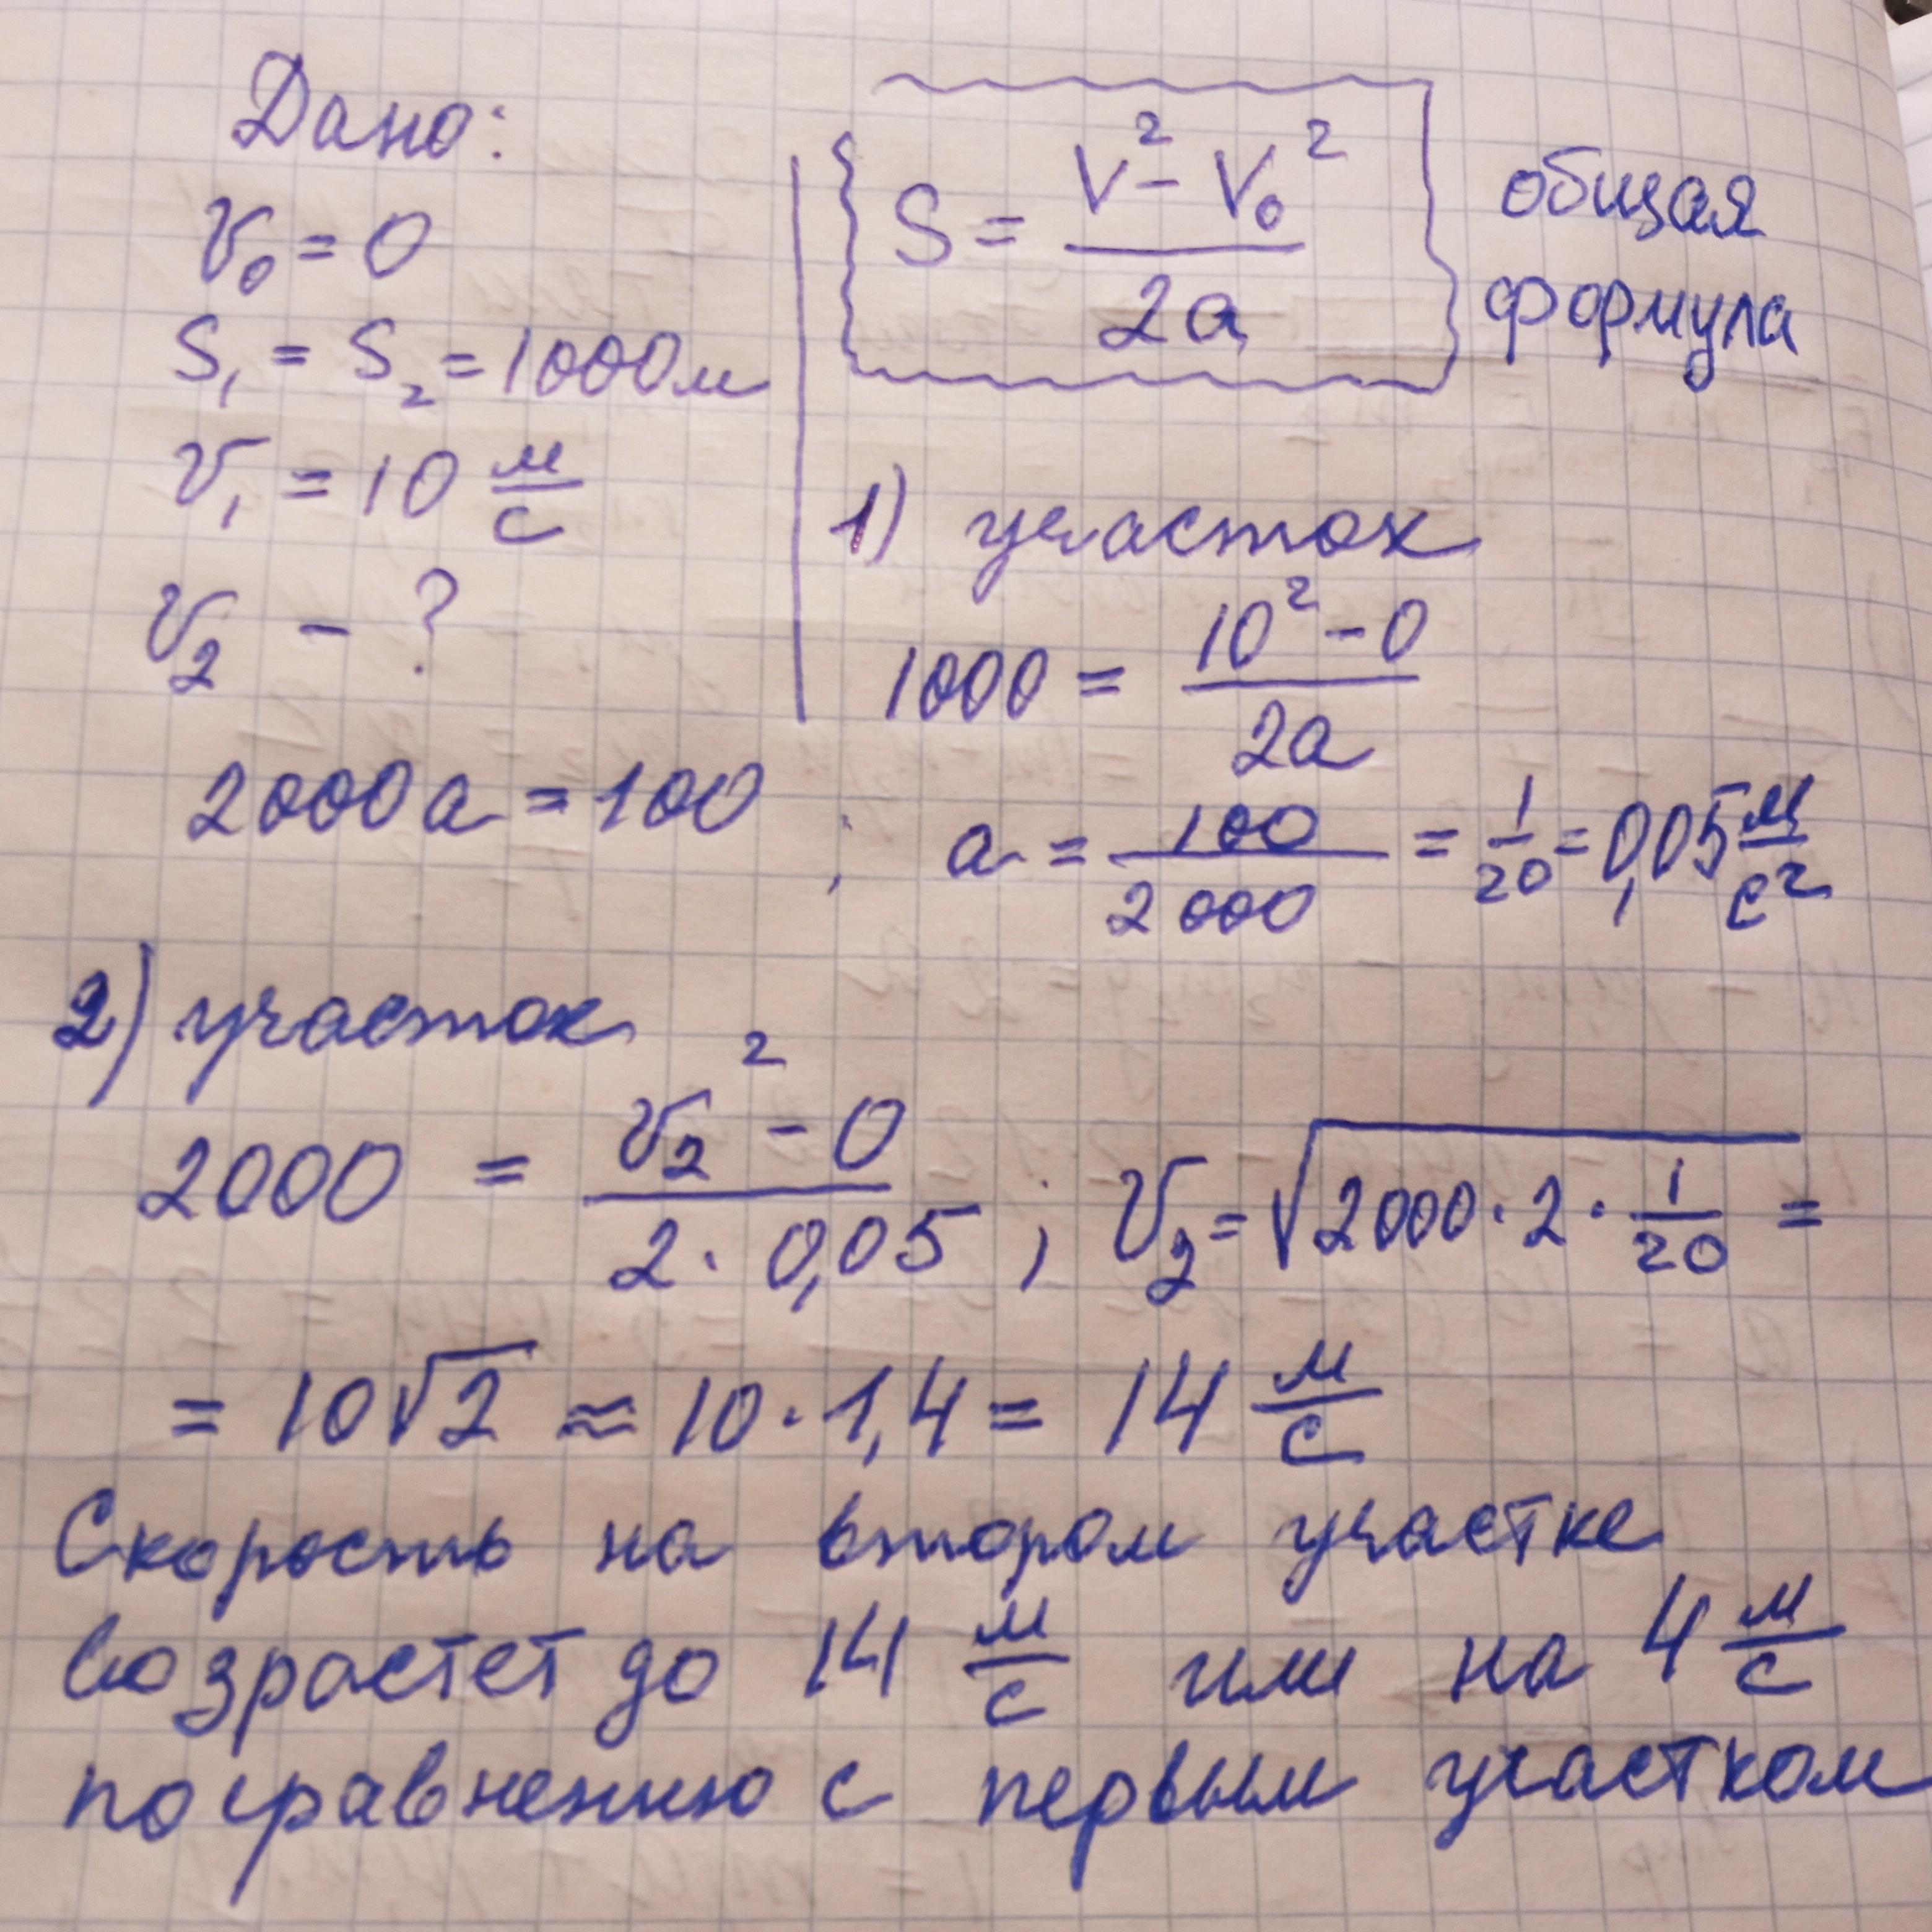 Дано:
V₀ = 0
S₁ = S₂ = 1000м
V₁ = 10 м/с
V₂ - ?
S = (V² - V₀²)/(2a)
общая
формула
1) участок
1000 = (10² - 0)/(2a)
2000a = 100 ; a = 100/2000 = 1/20 = 0,05 м/с²
2) участок
2000 = (V₂² - 0)/(2 · 0,05) ; V₂ = √(2000 · 2 · 1/20) =
= 10√2 ≈ 10 · 1,4 = 14 м/с
Скорость на втором участке
возрастет до 14 м/с или на 4 м/с
по сравнению с первым участком